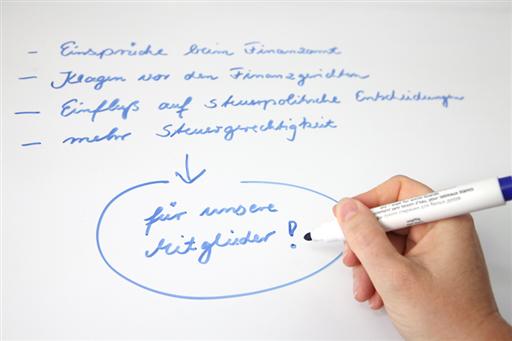 - Einsprüche beim Finanzamt
- Klagen vor den Finanzgerichten
- Einfluß auf steuerpolitische Entscheidungen
- mehr Steuergerechtigkeit
für unsere
Mitglieder!